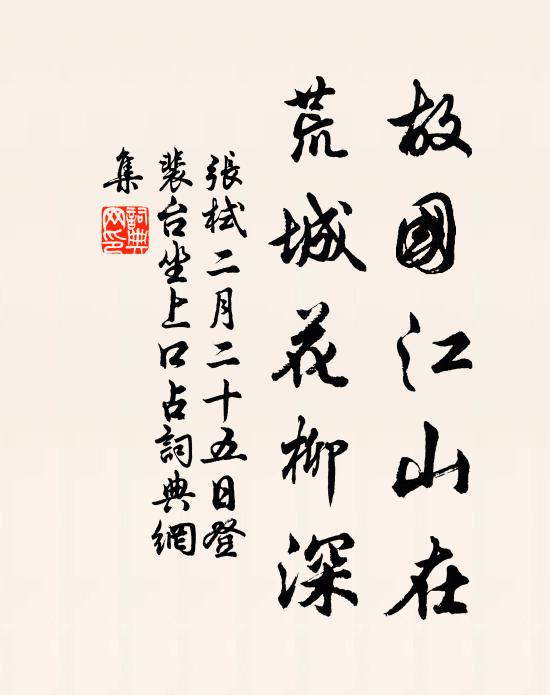 故國江山在
荒城花柳深
張栻二月二十五日登
裴台坐上口占詞典網
集
詞典網印